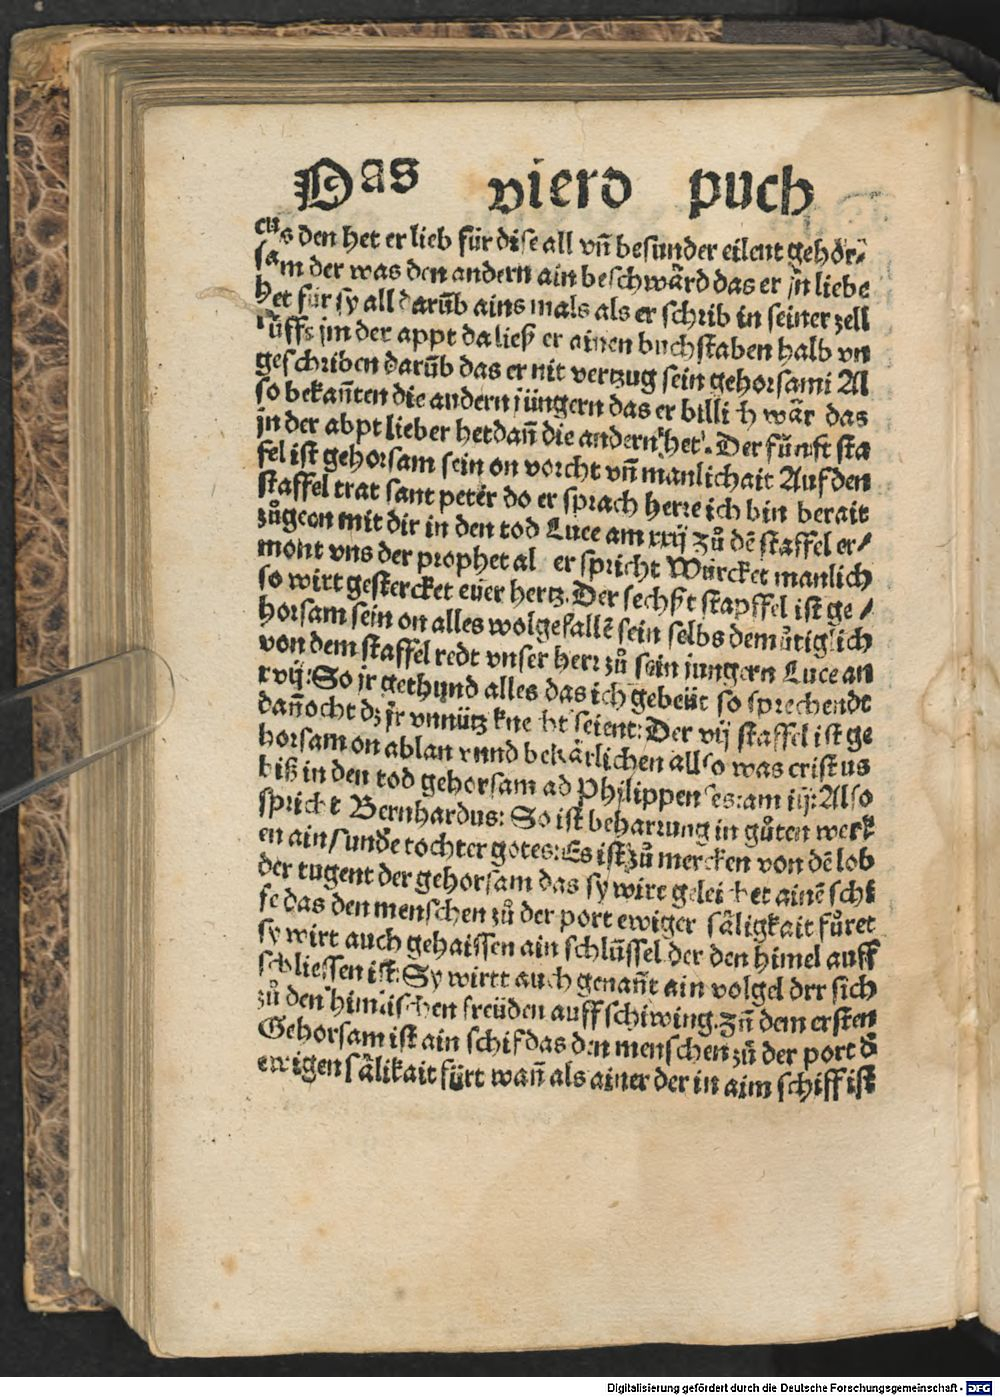 Das vierd puch
cus den het er lieb für dise all vñ besunder eilent gehör⸗
sam der was den andern ain beschwärd das er jn liebe
het für sy all darūb ains mals als er schrib in seiner zell
rüffs jm der appt da ließ er ainen buchstaben halb vn
geschriben darūb das er nit vertzug sein gehorsami Al
so bekañten die andern jüngern das er billich wär das
jn der abpt lieber het dañ die andern het. Der fünft sta
fel ist gehorsam sein on vorcht vñ manlichait Auf den
staffel trat sant peter do er sprach herre ich bin berait
zůgeen mit dir in den tod Luce am xxij Zů dē staffel er⸗
mont vns der prophet al er spricht Würcket manlich
so wirt gestercket eüer hertz. Der sechßt stapffel ist ge⸗
horsam sein on alles wolgefallē sein selbs demütiglich
von dem staffel redt vnser herr zů sein jungern Luce an
xvij: So jr gethund alles das ich gebeüt so sprechende
dañocht dz jr vnnütz knecht seient: Der vij staffel ist ge
horsam on ablan vnnd beharlichen allso was cristus
biß in den tod gehorsam ad Philippenses: am iij: Also
spricht Bernhardus: So ist beharrung in gůten werk
en ain sunde tochter gotes: Es ist zů mercken von dē lob
der tugent der gehorsam das sy wirt geleichet ainē schi
fe das den menschen zů der port ewiger säligkait fůret
sy wirt auch gehaissen ain schlüssel der den himel auff
schliessen ist: Sy wirtt auch genañt ain volgel drr sich
zů den himlischen freüden auff schiwing. Zū dem ersten
Gehorsam ist ain schif das den menschen zů der port d̄
ewigen sälikait fürt wañ als ainer der in aim schiff ist
Digitalisierung gefördert durch die Deutsche Forschungsgemeinschaft - DFG